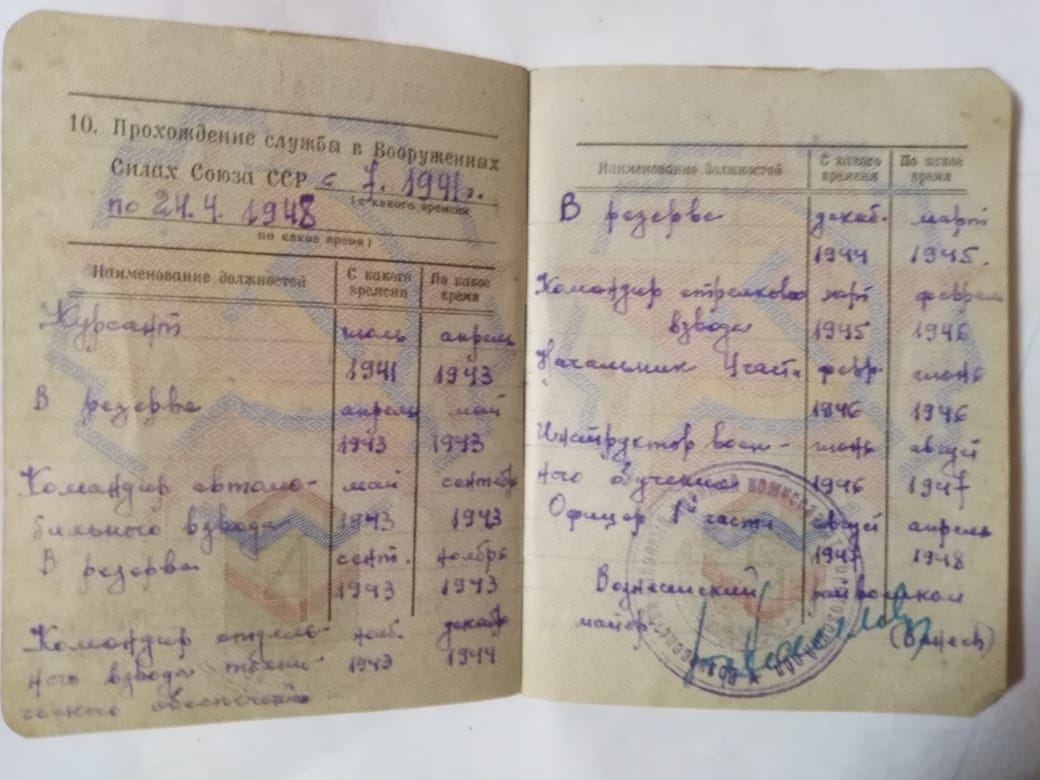 10. Прохождение службы в Вооруженных
Силах Союза ССР с 7. 1941 г.
(с какого времени
по 24. 4. 1948
по какое время)
Наименование должностей С какого времени По какое время
Курсант июль апрель
1941 1943
В резерве апрель май
1943 1943
Командир автомо- май сентябр
бильного взвода 1943 1943
В резерве сент. ноябрь
1943 1943
Командир отдель- нояб. декабр
ного взвода техни- 1943 1944
ческого обеспечения
Наименование должностей С какого времени По какое время
В резерве декаб. март
1944 1945.
Командир стрелкового март феврал
взвода 1945 1946
Начальник 4 части февр июнь
1946 1946
Инструктор воен- июнь август
ного обучения 1946 1947
Офицер 1й части август апрель
1947 1948
райвоенком
майор